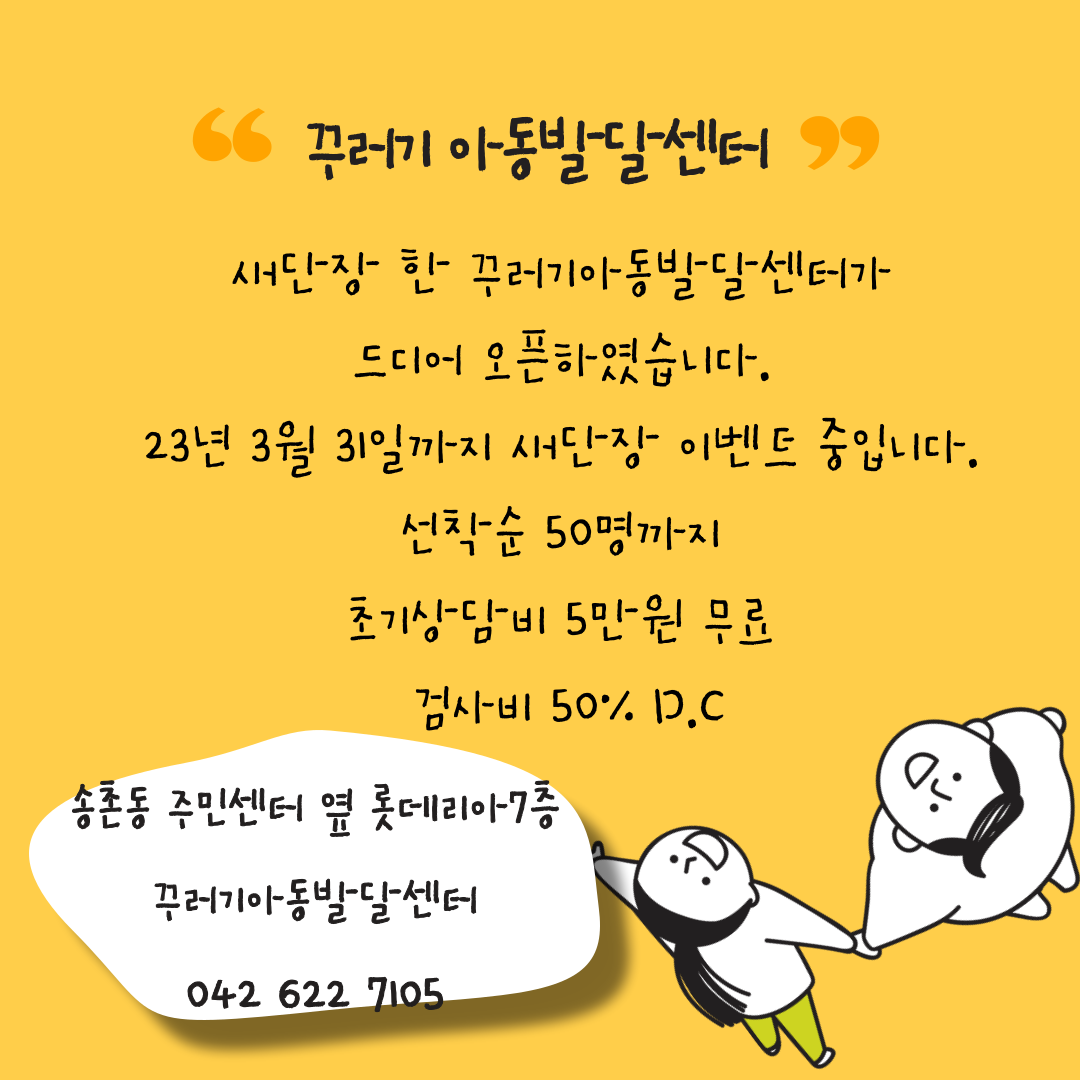 “ 꾸러기 아동발달센터 ”
새단장 한 꾸러기아동발달센터가
드디어 오픈하였습니다.
23년 3월 31일까지 새단장 이벤트 중입니다.
선착순 50명까지
초기상담비 5만원 무료
검사비 50% D.C
송촌동 주민센터 옆 롯데리아7층
꾸러기아동발달센터
042 622 7105